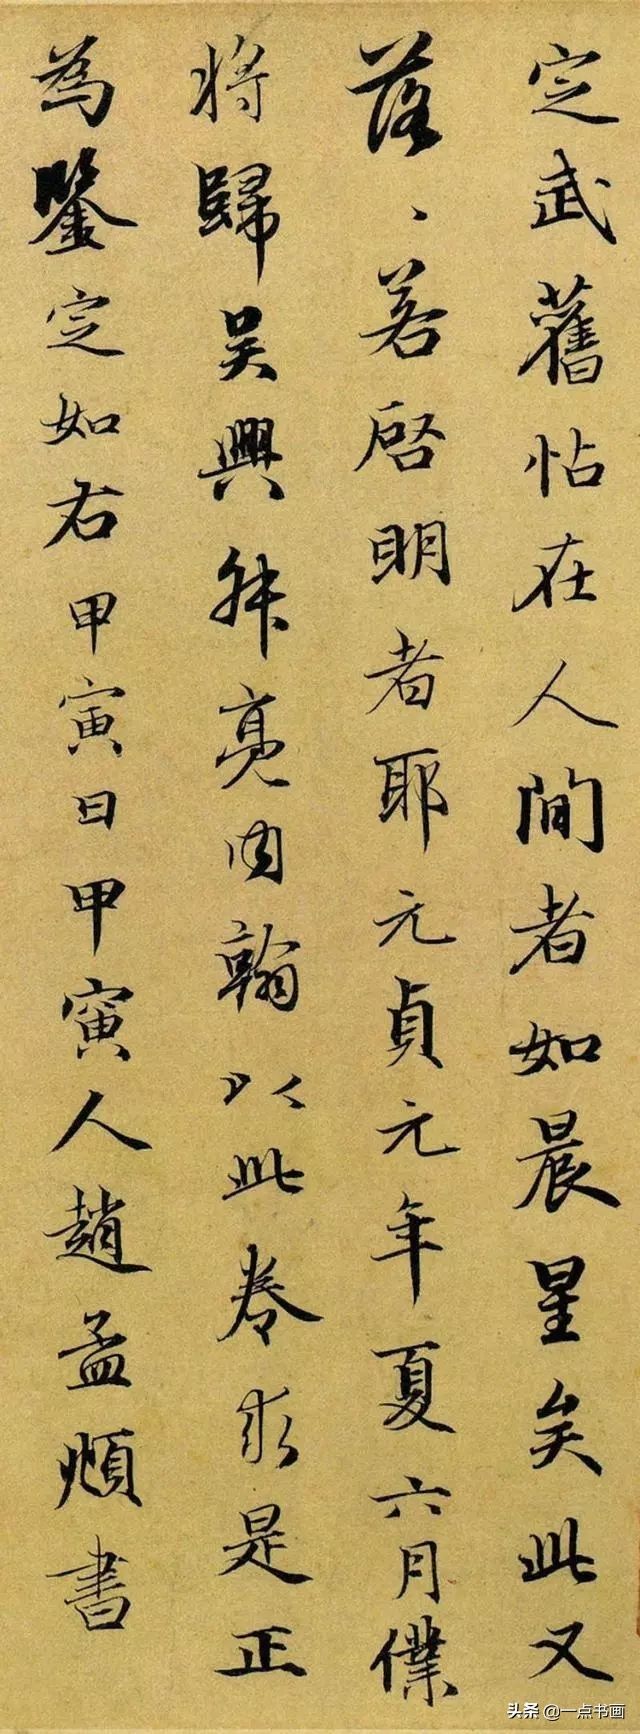 定武舊帖在人間者如晨星矣此又
落、若啓明者耶元貞元年夏六月僕
將歸吳興叔亮内翰以此卷求是正
為鑒定如右甲寅日甲寅人趙孟頫書
头条 @一点书画